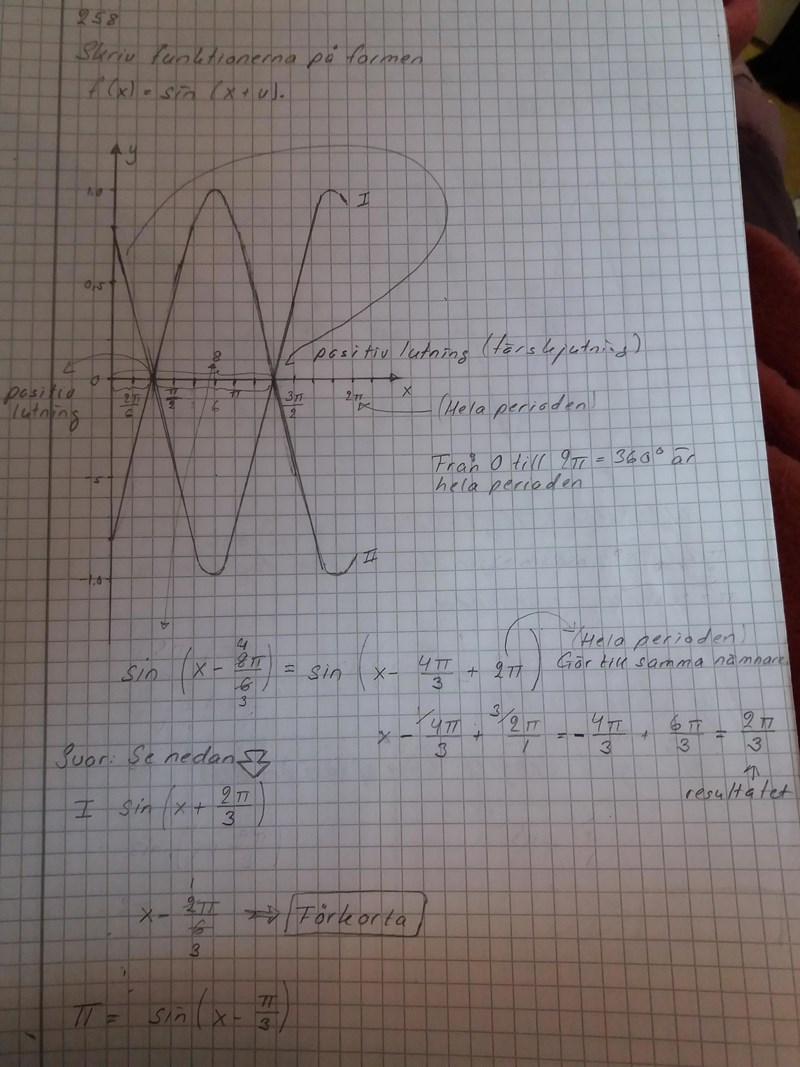 258
Skriv funktionerna på formen
f(x) = sin (x+v).
y
1.0
I
0,5
positiv lutning (förskjutning)
8
0
positiv
lutning
2π/6
π/2
6
π
3π/2
2π
x
(Hela perioden)
Från 0 till 2π = 360° är
hela perioden
-5
-1.0
II
(Hela perioden)
Gör till samma nämnare
sin (x - 8π/6) = sin (x - 4π/3 + 2π)
4
3
x - 4π/3 + 2π/1 = - 4π/3 + 6π/3 = 2π/3
1/
3/
resultatet
Svar: Se nedan
I sin (x + 2π/3)
1
x - 2π/6 → Förkorta
3
II = sin (x - π/3)